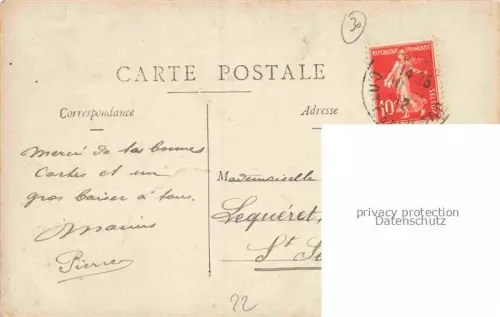 30
REPUBLIQUE FRANÇAISE
10
CARTE POSTALE
Correspondance
Adresse
Merci de tes bonnes
Cartes et un
gros baiser à tous.
Marius
Pierre
Mademoiselle
Lequéret,
St
privacy protection
Datenschutz
22